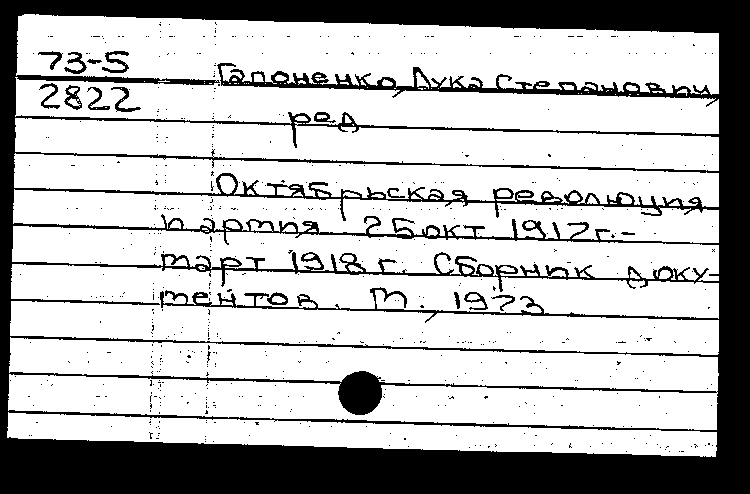 73-5
Гапоненко, Лука Степанович,
2822
ред
Октябрьская революция
партия 25 окт 1917г.-
март 1918 г. Сборник доку-
ментов. М., 1973